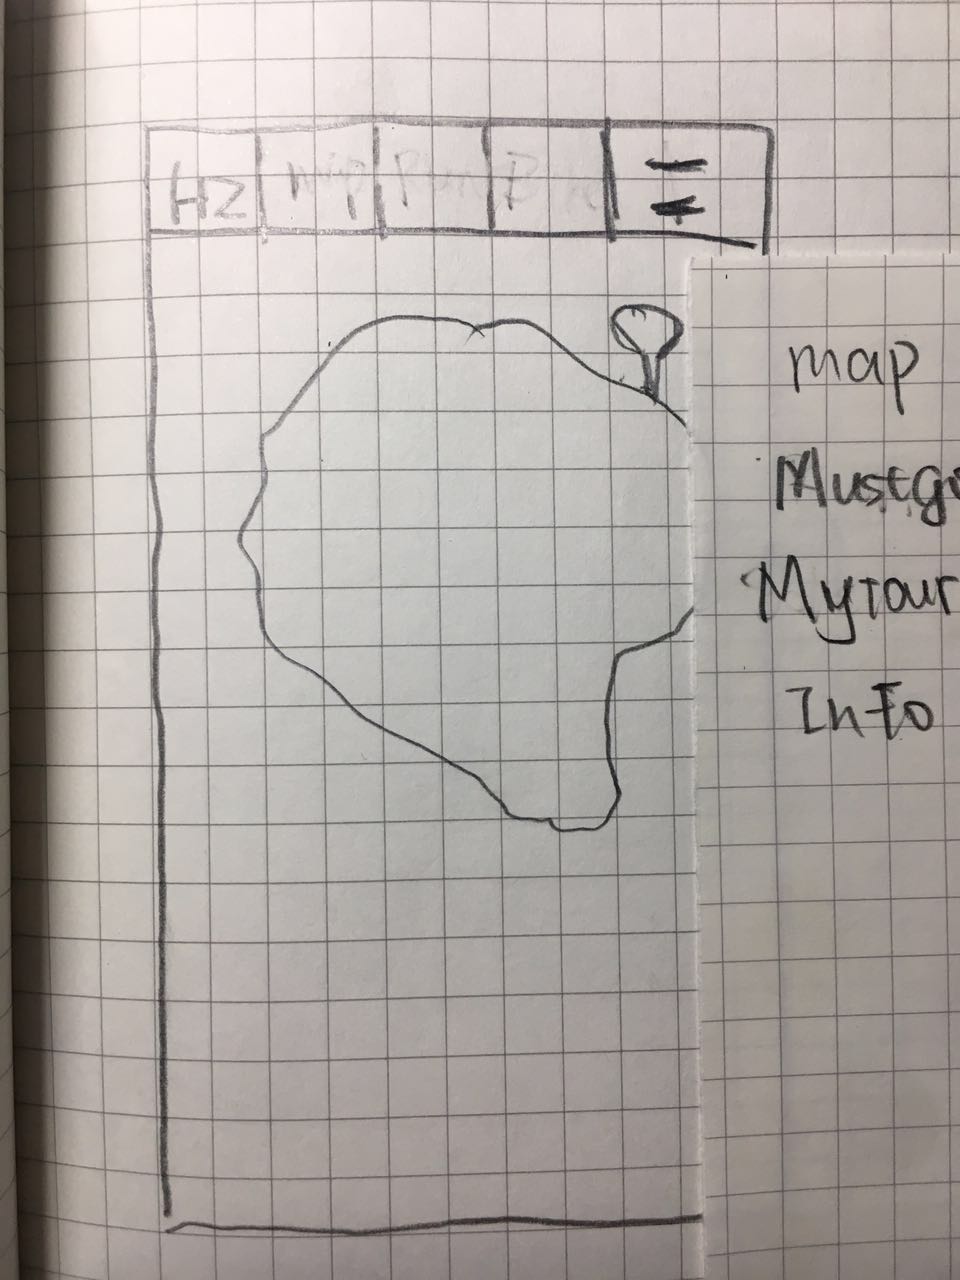 HZ map
map
Mustgo
MyTour
Info